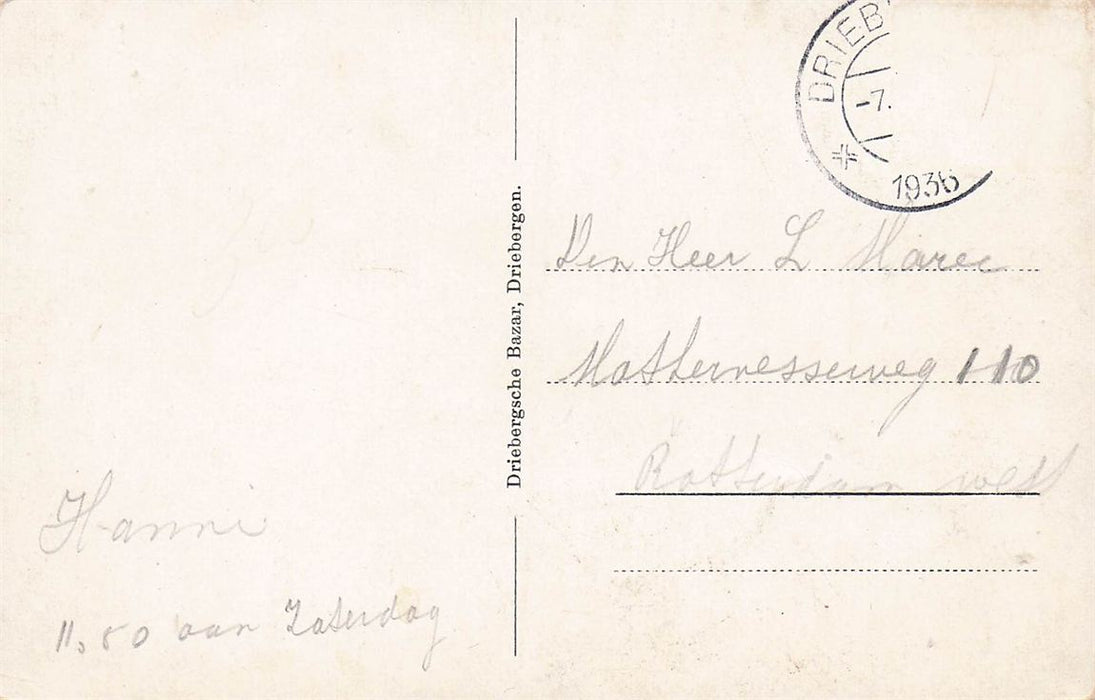 DRIEB
-7.
1936
Den Heer L Maree
Mathenesserweg 110
Rotterdam west
Driebergsche Bazar, Driebergen.
Hanni
11.50 aan Zaterdag